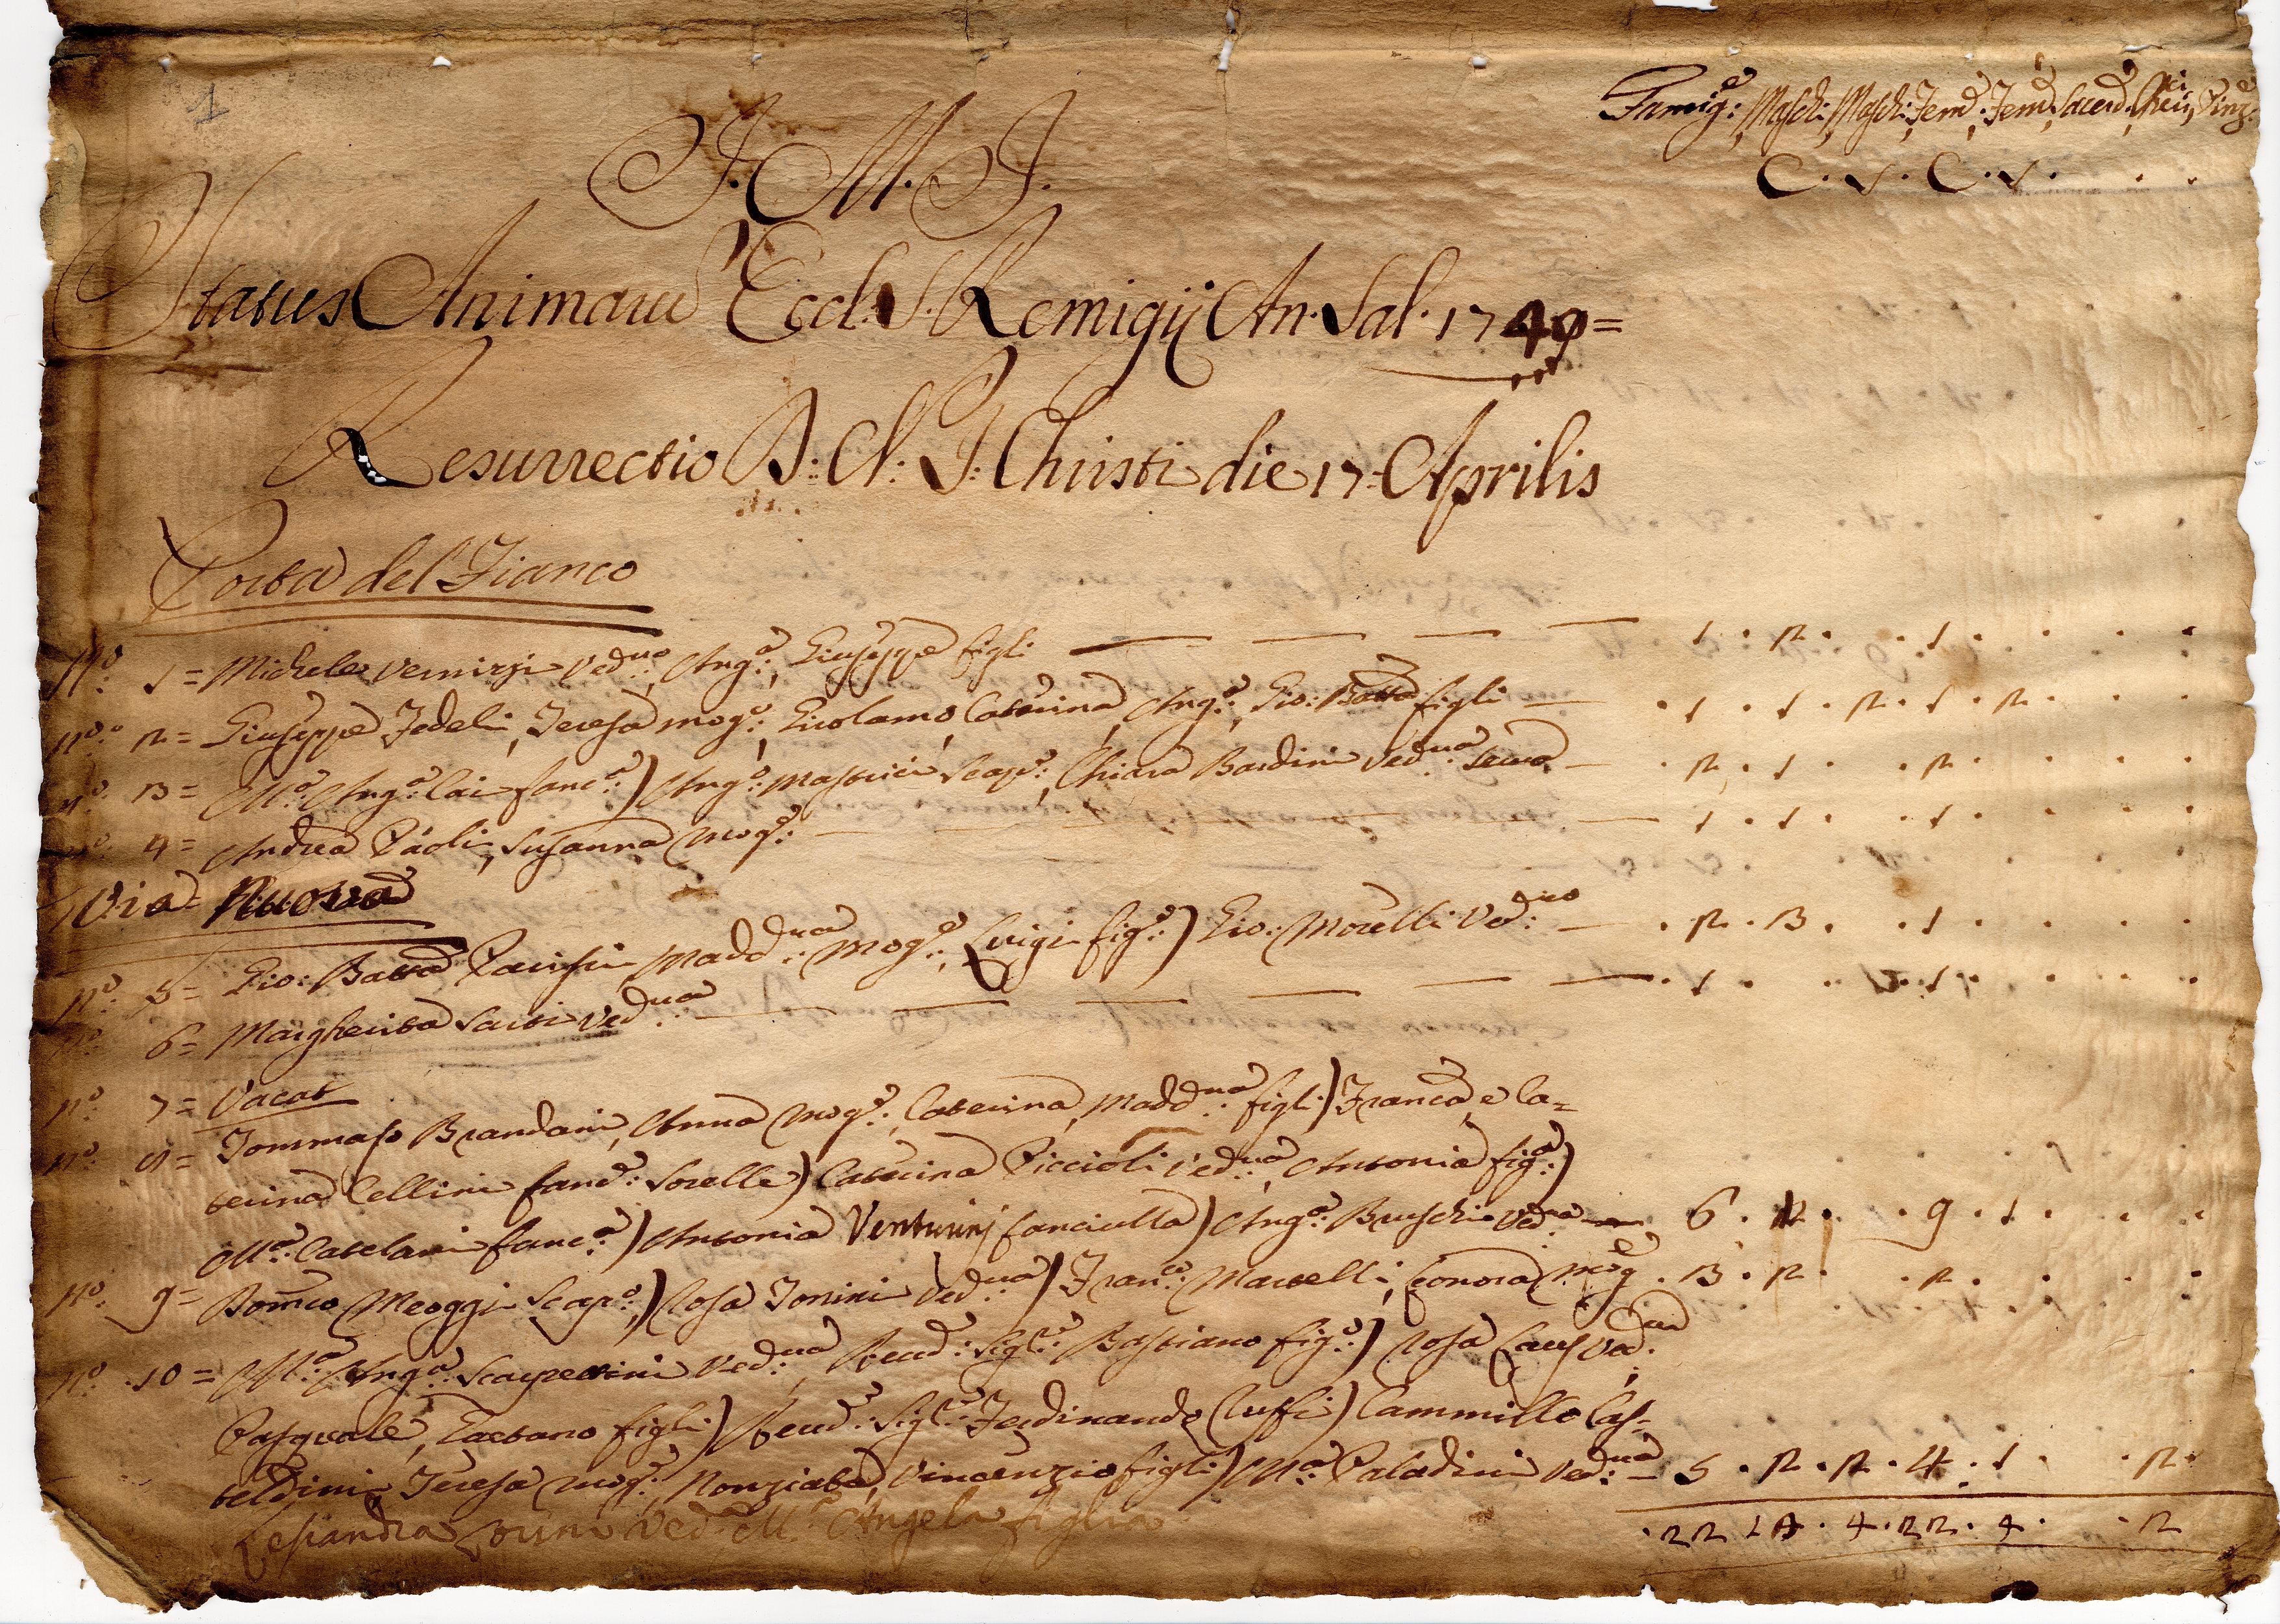 1
Famig:e Masch: Masch: Fem:e Fem:e Sacerd: Cherici
C. S. C. S. . .
J. M. J.
Status Animarũ Eccl. S. Remigij An. Sal. 1740=
Resurrectio D: N: J: Christi die 17 Aprilis
Porta del Fianco
N.o 1= Michele Vernizzi Ved:uo, Ang:a, Giuseppe figli — — — — 1 . 2 . . 1 . . . .
N.o 2= Giuseppe Fedeli, Teresa mog:e, Girolamo, Caterina, Ang:a, Gio: Batta figli — . 1 . 1 . 2 . 1 . 2 . . .
N.o 3= M:a Ang:a Lai fanc:a) Ang:o Mastrici Scap:o, Chiara Bardini Ved:ua serva — . 2 . 1 . . 2 . . . .
N.o 4= Andrea Paoli, Susanna Mog:e — — 1 . 1 . . 1 . . . .
Via Nuova
N.o 5= Gio: Batta Parigi Madd:na Mog:e, Luigi fig:o) Gio: Morelli Ved:uo — . 2 . 3 . . 1 . . . .
N.o 6= Margherita Sarti Ved:ua — — — — — — . 1 . . . 1 . . . .
N.o 7= Vacat
N.o 8= Tommaso Brandani, Anna Mog:e, Caterina, Madd:na figli) Franca, e Ca=
terina Cellini fanc:e Sorelle) Caterina Piccioli Ved:ua, Antonia fig:a)
M:a Catelani fanc:a) Antonia Venturinj fanciulla) Ang:a Bruschi Ved:ua — 6 . . . 9 . 1 . . . .
N.o 9= Domco Meoggi Scap:o) Rosa Tonini Ved:ua) Fran:co Martelli, Leonora Mog . 3 . 2 . . 2 . . . .
N.o 10= M:a Ang:a Scarpettini Ved:ua, Reud: Sig:re Bastiano fig:o) Rosa Ved:ua
Pasquale, Gaetano figli) Reud: Sig:re Ferdinando Ruffi) Cammillo Cas-
teldini Teresa mog:e Nonziata, Vincenzio figli) M:a Paladini Ved:ua — 5 . 2 . 2 . 4 . 1 . . 2 .
Lesiandra Ved:a M:a Angela figlia
. 22 14 . 4 . 22 . 4 . . 2